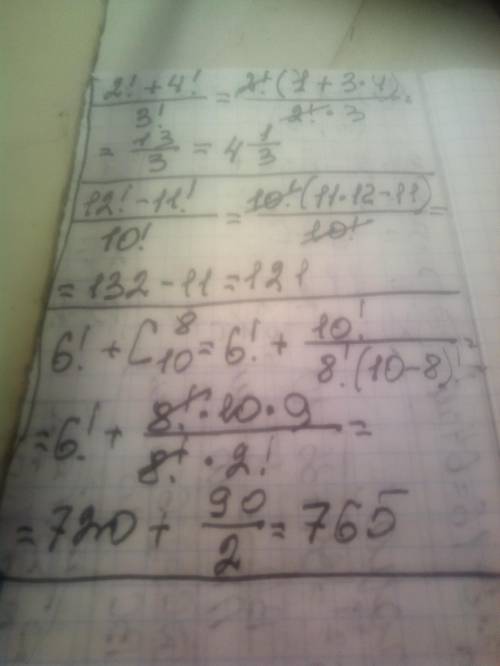 (2! + 4!)/3! = 2!(1 + 3·4)/(2!·3) =
= 13/3 = 4 1/3
(12! - 11!)/10! = 10!(11·12 - 11)/10! =
= 132 - 11 = 121
6! + C₁₀⁸ = 6! + 10!/(8!(10-8)!) =
= 6! + (8!·10·9)/(8!·2!) =
= 720 + 90/2 = 765